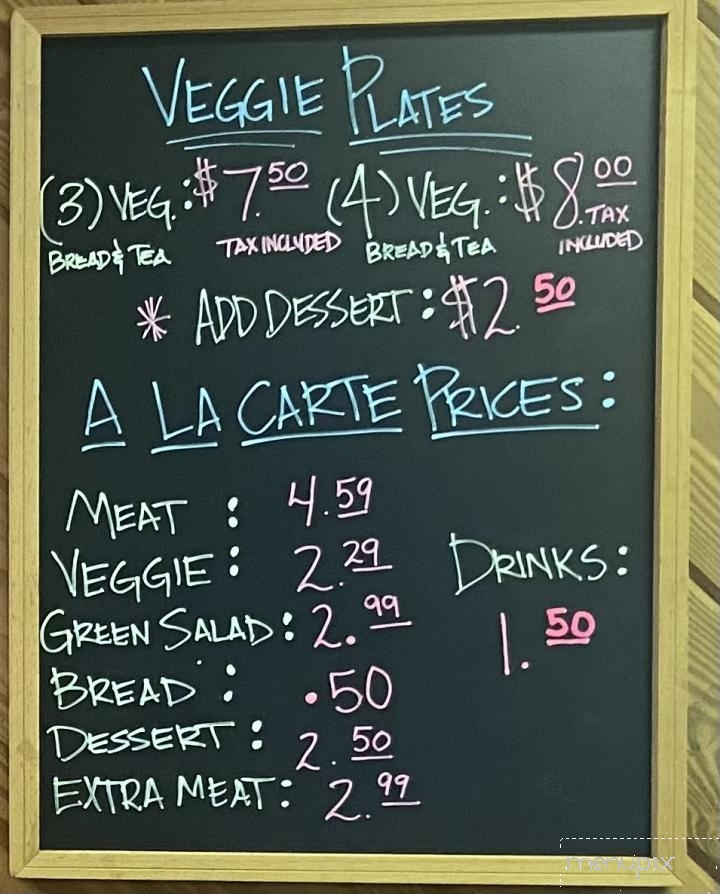 VEGGIE PLATES
(3) VEG.: $7.50 (4) VEG.: $8.00
BREAD & TEA TAX INCLUDED BREAD & TEA TAX INCLUDED
* ADD DESSERT: $2.50
A LA CARTE PRICES:
MEAT : 4.59
VEGGIE: 2.29
DRINKS:
GREEN SALAD: 2.99
1.50
BREAD : .50
DESSERT: 2.50
EXTRA MEAT: 2.99
menupix